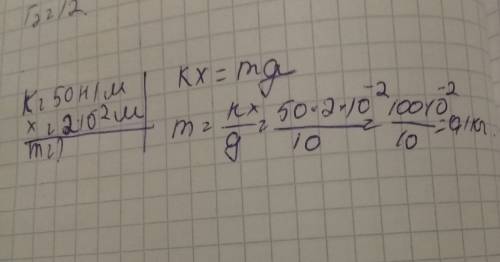 K = 50 н/м
x = 2·10⁻² м
m = ?
кx = mg
m = кx/g = 50·2·10⁻²/10 = 100·10⁻²/10 = 0,1 кг